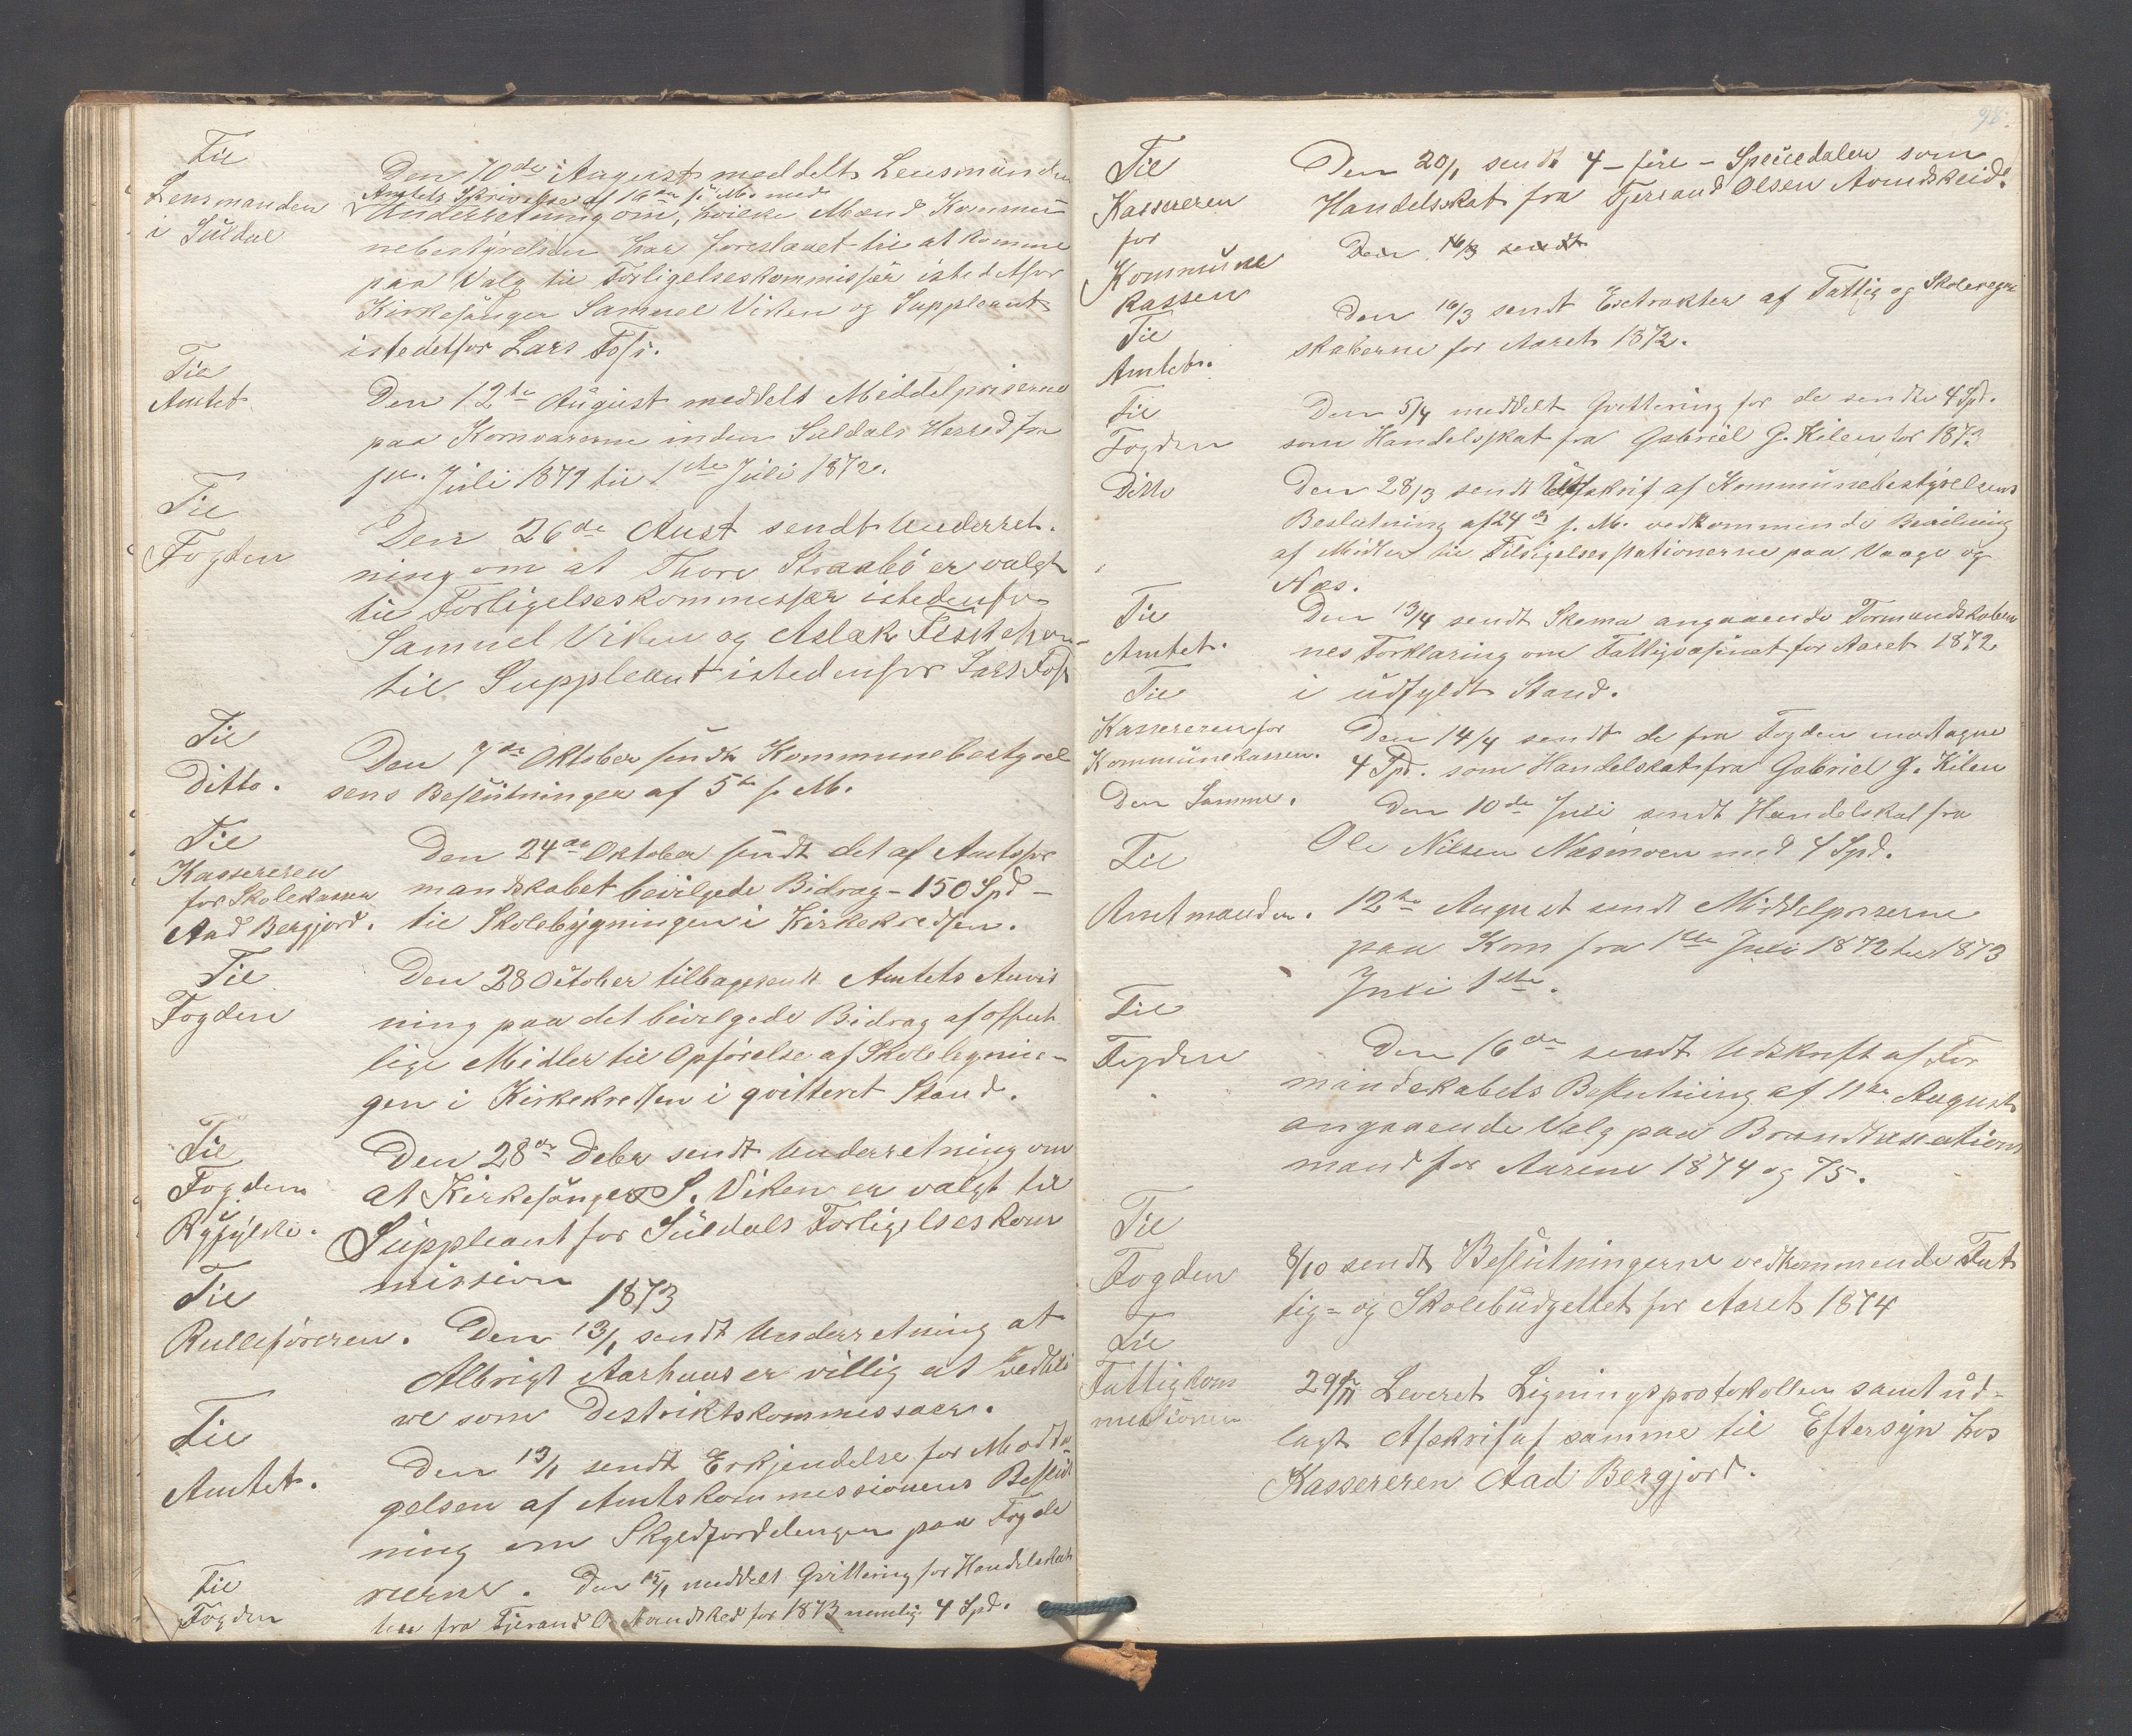 Til
Lensmanden
i Süldal
Den 10de August meddelt Lensmanden
Amtets Skrivelse af 16de f. M. med
Underretning om, hvilke Mænd Kommu
nebestyrelsen har foreslaaet til at komme
paa Valg til Forligelseskommissær istedetfor
Kirkesanger Samuel Viken og Suppleant
istedetfor Lars Foss.
Til
Amtet
Den 12te August meddelt Middelpriserne
paa Kornvarerne inden Suldals Herred fra
Juli 1871 til 1ste Juli 1872.
Til
Fogden
Den 26de Aust sendt Underret-
ning om at Thore Straabö er valgt
til Forligelseskommissær istedenfor
Samuel Viken og Aslak
til Suppleant istedenfor Lars Foss
Til
Ditto.
Den 7de Oktober sendt Kommunebestyrel
sens Beslutninger af 5te s. M.
Til
Kassereren
for Skolekassen
Aad Bergjord.
Den 24de Oktober sendt det af Amtsfor
mandskabet bevilgede Bidrag - 150 Spd -
til Skolebygningen i Kirkekredsen.
Til
Fogden
Den 28 October tilbagesendt Amtets Anvis
ning paa det bevilgede Bidrag af offent
lige Midler til Opförelse af Skolebygnin-
gen i Kirkekredsen i qvitteret Stand.
Til
Fogden
Ryfylke.
Den 28de Debr sendt Underretning om
at Kirkesanger S. Viken er valgt til
Suppleant for Süldals Forligelseskom
mission
1873
Til
Rulleföreren.
Den 13/1 sendt Underretning at
Albrigt Aarhuus er villig at vedbli
ve som Destriktskommissær.
Til
Amtet.
Den 13/1 sendt Erkjendelse for Modta-
gelsen af Amtskommissionens Beslut
ning om Skyldfordelingen paa Fogde
rierne.
Til
Fogden
Den 15/1 meddelt Qvittering for Handelsskat
fra Tjerand O. for 1873 nemlig 4 Spd.
98.
Til
Kassereren
for
Kommune
kassen
Den 20/1 sendt 4 - fire - Speciedaler som
Handelsskat fra Tjerand Olsen
Den 16/3 sendt
Til
Amtet.
Den 16/3 sendt Extrakter af Fattig og Skoleregn
skaberne for Aaret 1872.
Til
Fogden
Den 5/4 meddelt Qvittering for de sendte 4 Spd.
som Handelsskat fra Gabriel G. Kilen for 1873
Ditto
Den 28/3 sendt Udskrift af Kommunebestyrelsens
Beslutning af 24de s. M. vedkommende Bevilning
af Midler til Tilsigelsesstationerne paa Vaage og
Næs.
Til
Amtet.
Den 13/4 sendt Skema angaaende Formandskaber
nes Forklaring om Fattigvæsenet for Aaret 1872
i udfyldt Stand.
Til
Kassereren for
Kommunekassen.
Den 14/4 sendt de fra Fogden modtagne
4 Spd. som Handelskat fra Gabriel G. Kilen
Den Samme.
Den 10de Juli sendt Handelskat fra
Ole Nilsen Næsmoen med 4 Spd.
Til
Amtmanden.
12te August sendt Middelpriserne
paa Korn fra 1ste Juli 1872 til 1873
Juli 1ste.
Til
Fogden
Den 16de sendt Udskrift af For
mandskabets Beslutning af 11te August
angaaende Valg paa Brandtaxations
mand for Aarene 1874 og 75.
Til
Fogden
8/10 sendt Beslutningerne vedkommende Fat
tig- og Skolebudgettet for Aaret 1874
Til
Fattigkom
missionen
29/11 Leveret Ligningsprotokollen samt ud-
lagt Afskrift af samme til Eftersyn hos
Kassereren Aad Bergjord.